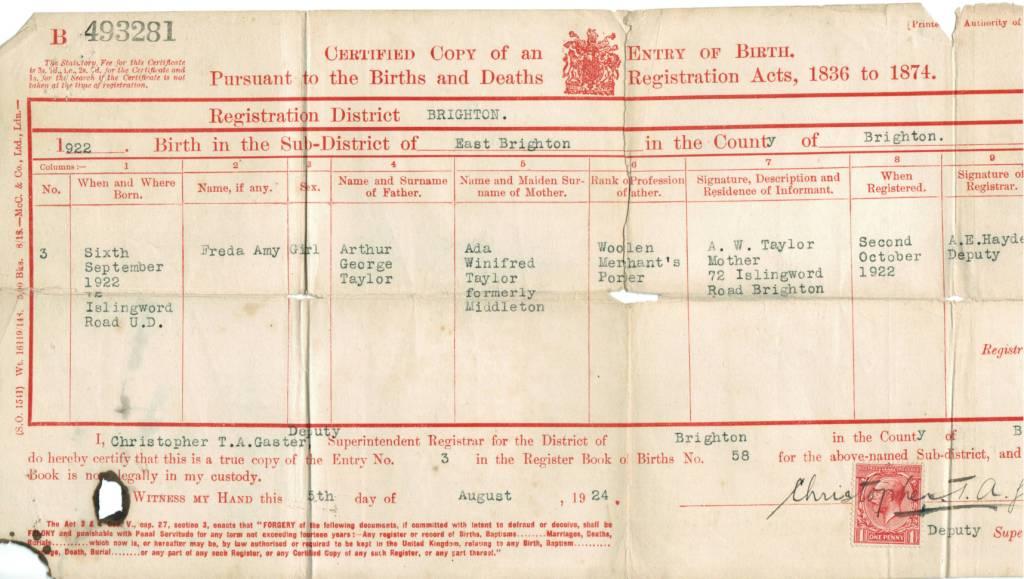 B 493281
[Printe Authority of
The Statutory Fee for this Certificate
is 2s. 7d., i.e., 2s. 7d. for the Certificate and
1s. for the Search if the Certificate is not
taken at the time of registration.
CERTIFIED COPY of an ENTRY OF BIRTH.
Pursuant to the Births and Deaths Registration Acts, 1836 to 1874.
Registration District BRIGHTON.
1922. Birth in the Sub-District of East Brighton in the County of Brighton.
Columns:— 1 2 3 4 5 6 7 8 9
No. When and Where Born. Name, if any. Sex. Name and Surname of Father. Name and Maiden Surname of Mother. Rank o Profession of ather. Signature, Description and Residence of Informant. When Registered. Signature of Registrar.
3 Sixth Freda Amy Girl Arthur Ada Woolen A. W. Taylor Second A.E.Hayde
September George Winifred Merhant's Mother October Deputy
1922 Taylor Taylor Porer 72 Islingword 1922
72 formerly Road Brighton
Islingword Middleton
Road U.D.
Registr
Deputy
I, Christopher T.A.Gaster, Superintendent Registrar for the District of Brighton in the County of B
do hereby certify that this is a true copy of the Entry No. 3 in the Register Book of Births No. 58 for the above-named Sub-district, and
Book is now legally in my custody.
WITNESS MY HAND this 5th day of August, 1924.
Christopher T. A. G
Deputy Supe
ONE PENNY
The Act 3 & 4 Geo. V., cap. 27, section 3, enacts that "FORGERY of the following documents, if committed with intent to defraud or deceive, shall be
FELONY and punishable with Penal Servitude for any term not exceeding fourteen years:—Any register or record of Births, Baptisms.........Marriages, Deaths,
Burials.........which now is, or hereafter may be, by law authorised or required to be kept in the United Kingdom, relating to any Birth, Baptism.........
ge, Death, Burial.........or any part of any such Register, or any Certified Copy of any such Register, or any part thereof."
(S.O. 1541) Wt. 16119/148. 500 Bks. 8/18.—McC. & Co., Ltd., Ldn.—